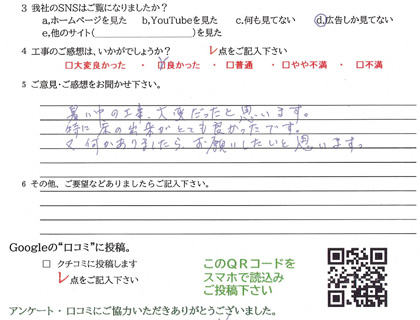 3 我社のSNSはご覧になりましたか?
a,ホームページを見た b,YouTubeを見た c,何も見てない d,広告しか見てない
e,他のサイト( )を見た
4 工事のご感想は、いかがでしょうか? レ点をご記入下さい
□大変良かった ・ □良かった ・ □普通 ・ □やや不満 ・ □不満
5 ご意見・ご感想をお聞かせ下さい。
暑い中の工事、大変だったと思います。
特に床の出来がとても良かったです。
又何かありましたら、お願いしたいと思います。
6 その他、ご要望などありましたらご記入下さい。
Googleの“口コミ”に投稿。
□ クチコミに投稿します
レ点をご記入下さい
このQRコードを
スマホで読込み
ご投稿下さい
アンケート・口コミにご協力いただきありがとうございました。